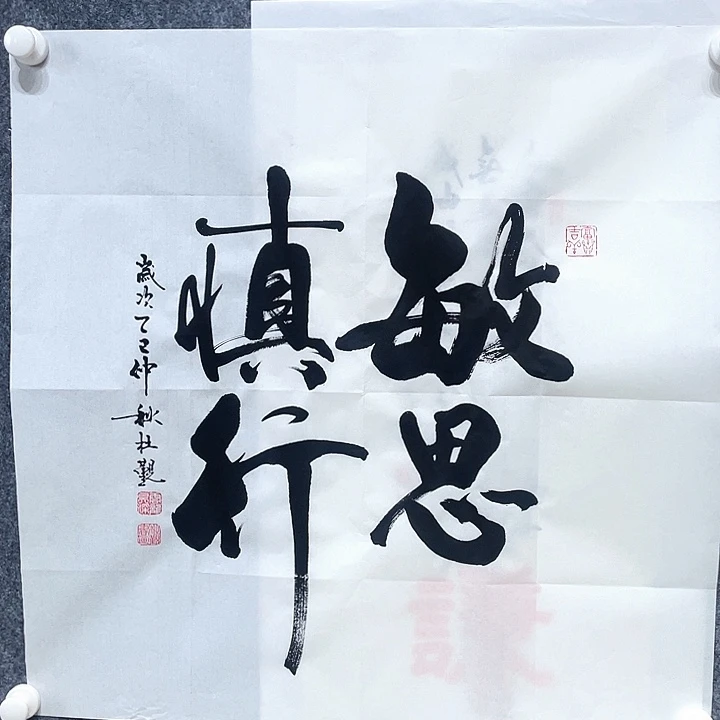 敏思
慎行
歲次乙巳仲秋杜觀